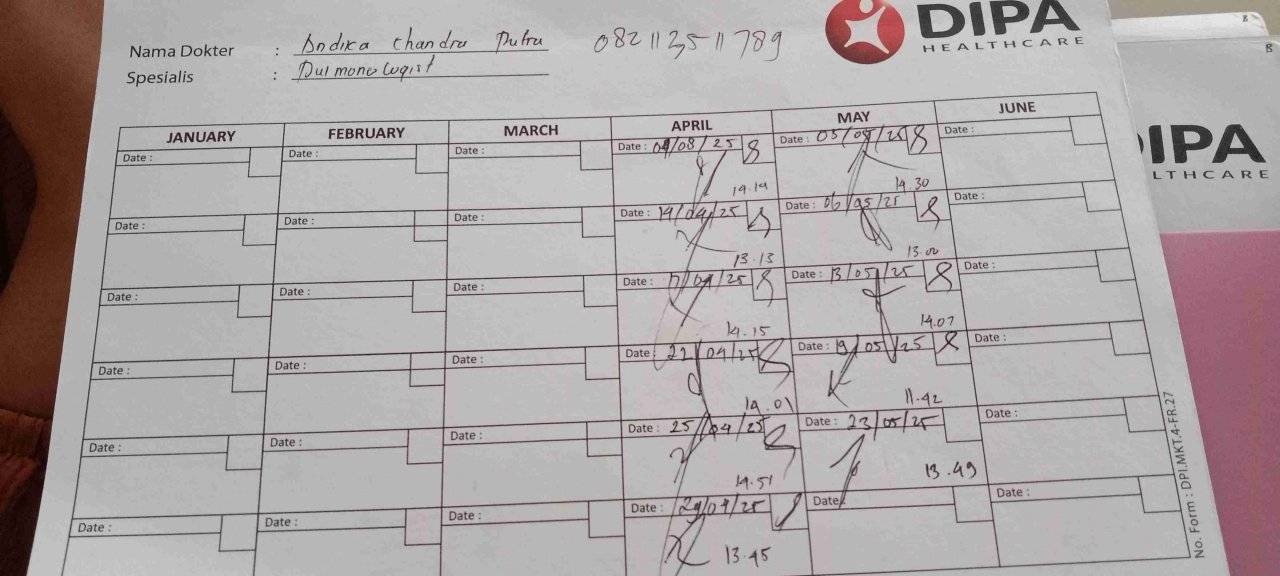 DIPA
HEALTHCARE
Nama Dokter : Andika Chandra Putra 082113511789
Spesialis : Pulmonologist
JANUARY FEBRUARY MARCH APRIL MAY JUNE
Date : Date : Date : Date : 04/08/25 Date : 05/05/25 Date :
14.19 14.30
Date : Date : Date : Date : 14/04/25 Date : 06/05/25 Date :
13.13 13.00
Date : Date : Date : Date : 17/04/25 Date : 13/05/25 Date :
14.15 14.07
Date : Date : Date : Date : 22/04/25 Date : 19/05/25 Date :
14.01 11.42
Date : Date : Date : Date : 25/04/25 Date : 23/05/25 Date :
14.51 13.49
Date : Date : Date : Date : 29/04/25 Date : Date :
13.45
No. Form : DPI.MKT.4-FR.27
IPA
LTHCARE
B
B